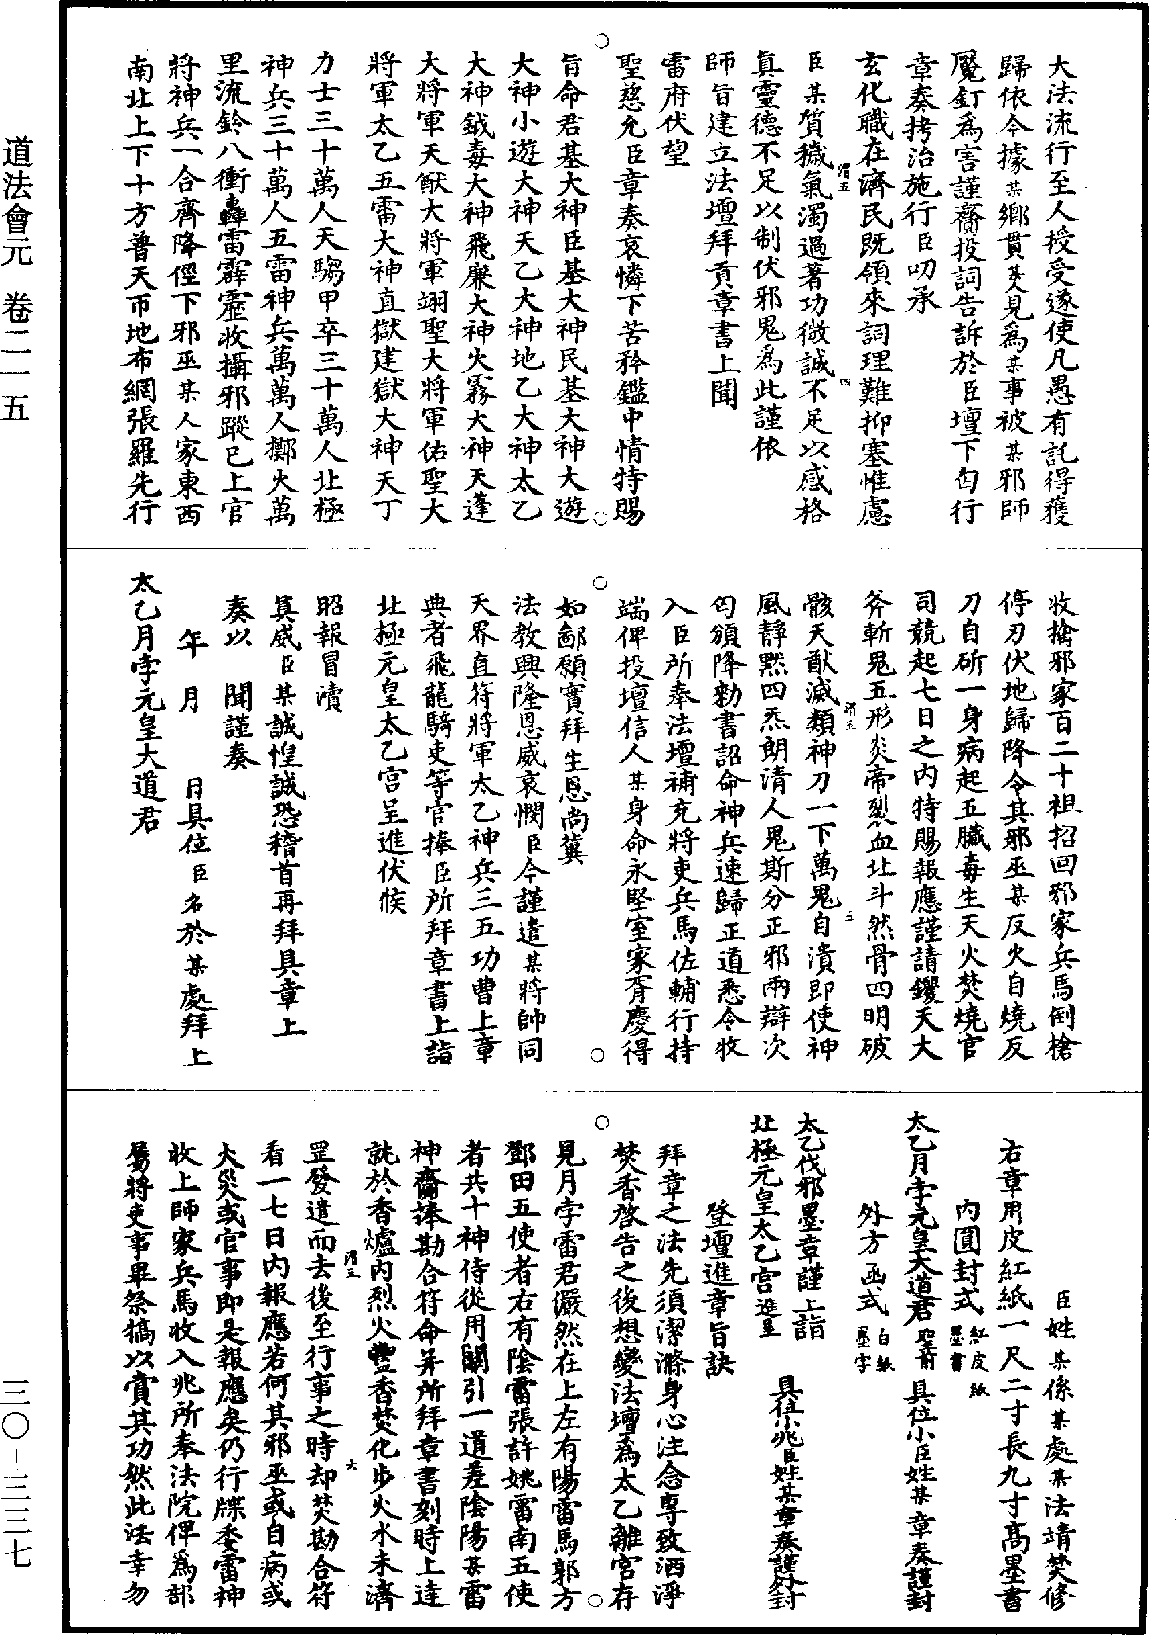 道法會元　卷二一五
三〇－三三七
大法流行至人授受遂使凡愚有託得獲
歸依今據某鄉貫某見為某事被某邪師
魘釘為害謹齎投詞告訴於臣壇下匄行
章奏拷治施行臣叨承
玄化職在濟民既領來詞理難抑塞惟慮
臣某質穢氣濁過著功微誠不足以感格
真靈德不足以制伏邪鬼為此謹依
師旨建立法壇拜貢章書上聞
雷府伏望
聖慈允臣章奏哀憐下苦矜鑑中情特賜
旨命君基大神臣基大神民基大神大遊
大神小遊大神天乙大神地乙大神太乙
大神鉞毒大神飛廉大神火霧大神天蓬
大將軍天猷大將軍翊聖大將軍佑聖大
將軍太乙五雷大神直獄建獄大神天丁
力士三十萬人天騶甲卒三十萬人北極
神兵三十萬人五雷神兵萬萬人擲火萬
里流鈴八衝轟雷霹靂收攝邪蹤已上官
將神兵一合齊降徑下邪巫某人家東西
南北上下十方普天帀地布網張羅先行
收擒邪家百二十祖招回邪家兵馬倒槍
停刃伏地歸降令其邪巫某反火自燒反
刀自斫一身病起五臟毒生天火焚燒官
司競起七日之內特賜報應謹請钁天大
斧斬鬼五形炎帝裂血北斗然骨四明破
骸天猷滅類神刀一下萬鬼自潰即使神
風靜默四炁朗清人鬼斯分正邪兩辯次
匄頒降勑書詔命神兵速歸正道悉令收
入臣所奉法壇補充將吏兵馬佐輔行持
端俾投壇信人某身命永堅室家胥慶得
如鄙願實拜生恩尚冀
法教興隆恩威哀憫臣今謹遣某將帥同
天界直符將軍太乙神兵三五功曹上章
典者飛龍騎吏等官捧臣所拜章書上詣
北極元皇太乙宮呈進伏候
昭報冒瀆
真威臣某誠惶誠恐稽首再拜具章上
奏以　聞謹奏
年　月　日具位臣名於某處拜上
太乙月孛元皇大道君
臣姓某係某處某法靖焚修
右章用皮紅紙一尺二寸長九寸高墨書
內圓封式紅皮紙墨書
太乙月孛元皇大道君聖前　具位小臣姓某章奏謹封
外方函式白紙墨字
太乙伐邪墨章謹上詣
北極元皇太乙宮進呈　具位小兆臣姓某章奏謹外封
登壇進章旨訣
拜章之法先須潔滌身心注念專致洒淨
焚香啓告之後想變法壇為太乙離宮存
見月孛雷君儼然在上左有陽雷馬郭方
鄧田五使者右有陰雷張許姚雷南五使
者共十神侍從用關引一道差陰陽某雷
神齎捧勘合符命并所拜章書刻時上達
訛於香爐內烈火豐香焚化步火水未濟
罡發遣而去後至行事之時却焚勘合符
看一七日內報應若何其邪巫或自病或
火災或官事即是報應矣仍行牒委雷神
收上師家兵馬收入兆所奉法院俾為部
屬將吏事畢祭犒以賞其功然此法幸勿